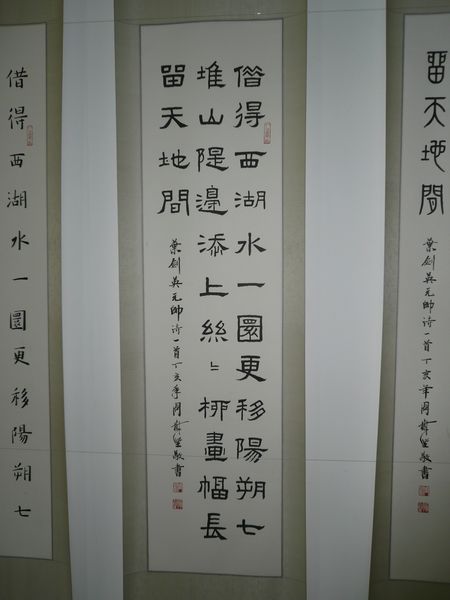 留天地間
葉劍英元帥詩一首丁亥年敬書
借得西湖水一圜更移陽朔七
堆山隄邊添上絲〻柳畫幅長
留天地間
葉劍英元帥詩一首丁亥年敬書
借得西湖水一圜更移陽朔七